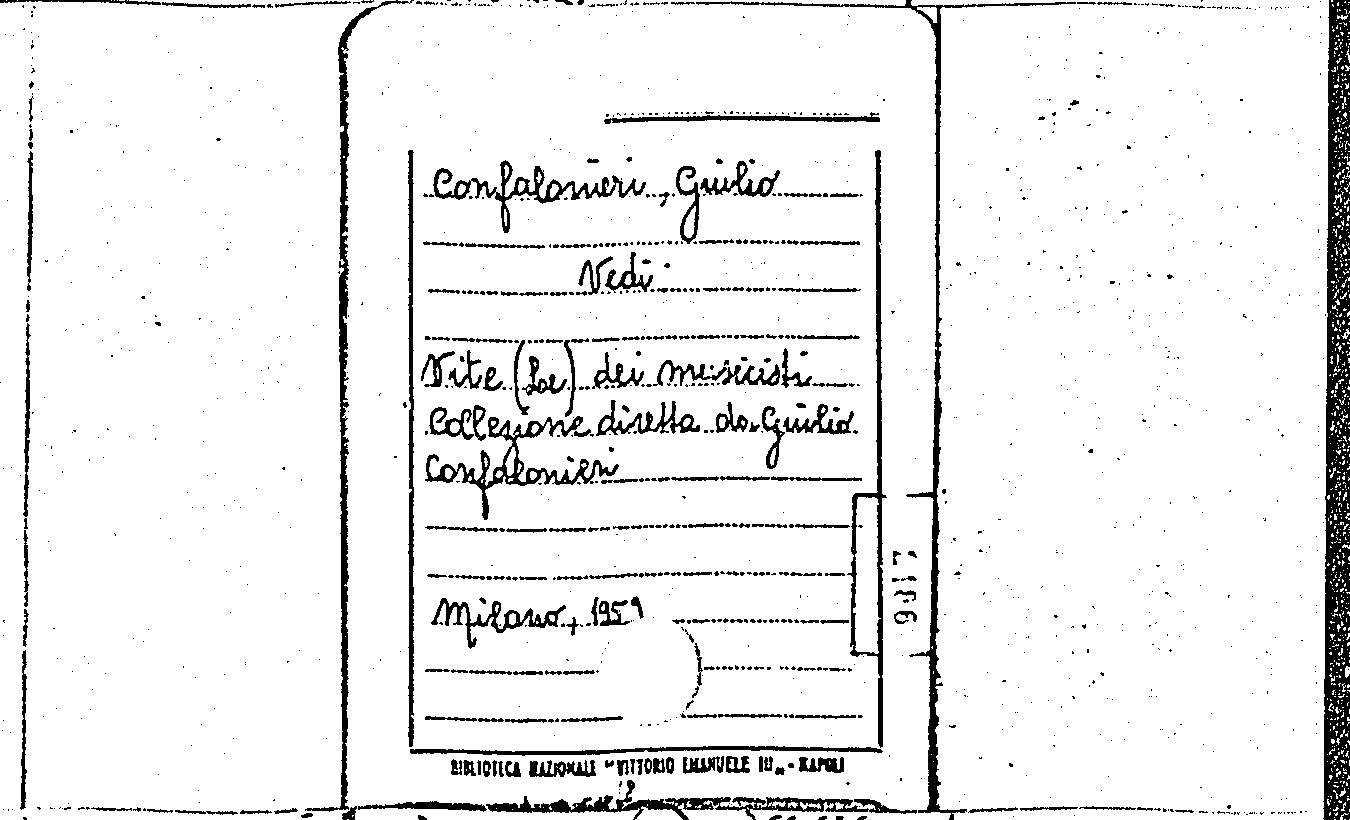 Confalonieri, Giulio
Vedi:
Vite (Le) dei musicisti
Collezione diretta da Giulio
Confalonieri
Milano, 1959
BIBLIOTECA NAZIONALE "VITTORIO EMANUELE III" - NAPOLI